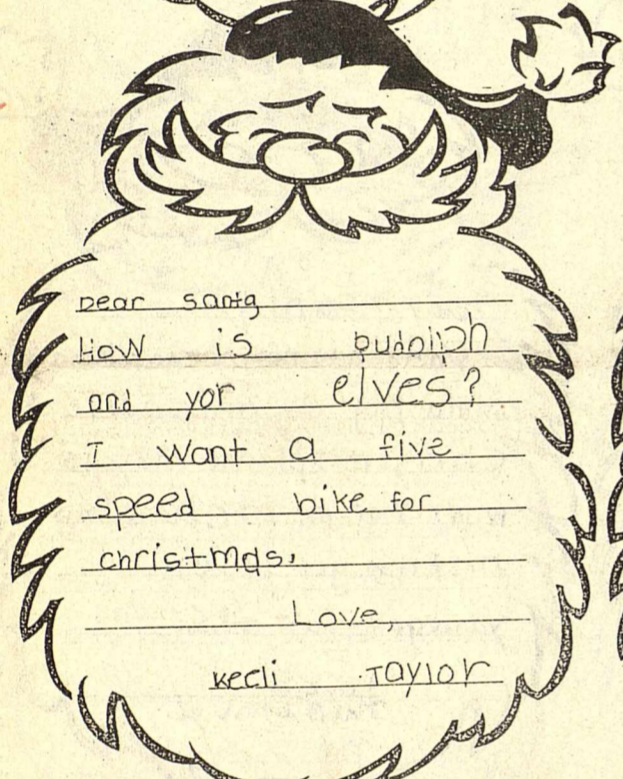 Dear Santa
How is
and yor elves?
I want a five
speed bike for
christmas.
Love,
Kecli Taylor